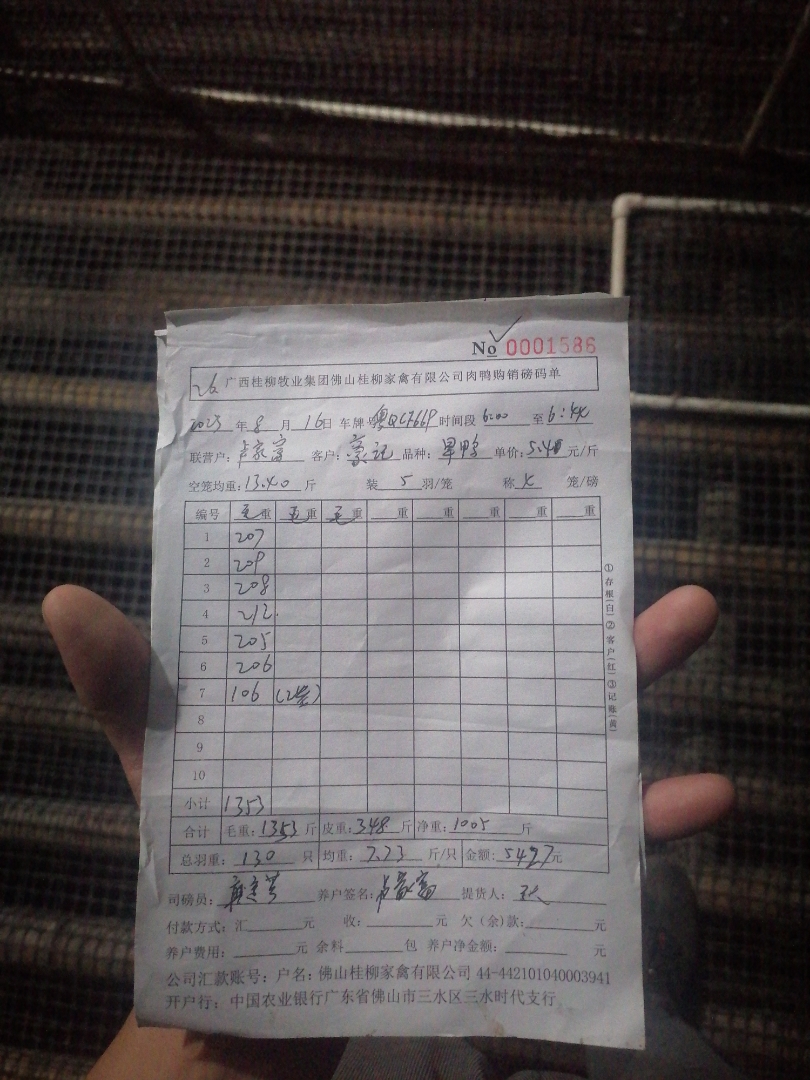 No 0001586
26 广西桂柳牧业集团佛山桂柳家禽有限公司肉鸭购销磅码单
2023 年 8 月 16 日 车牌 粤QCF669 时间段 6:00 至 6:44
联营户: 卢家富 客户: 豪记 品种: 单价: 5.40 元/斤
空笼均重: 13.40 斤 装 5 羽/笼 称 4 笼/磅
编号 毛重 毛重 毛重 重 重 重 重 重
1 207
2 209
3 208
4 212
5 205
6 206
7 106 (2笼)
8
9
10
小计 1353
合计 毛重: 1353 斤 皮重: 348 斤 净重: 1005 斤
总羽重: 130 只 均重: 7.73 斤/只 金额: 5427 元
司磅员: 养户签名: 提货人:
付款方式: 汇 元 收: 元 欠(余)款: 元
养户费用: 元 余料 包 养户净金额: 元
公司汇款账号: 户名: 佛山桂柳家禽有限公司 44-442101040003941
开户行: 中国农业银行广东省佛山市三水区三水时代支行
①存根(白)②客户(红)③记账(黄)